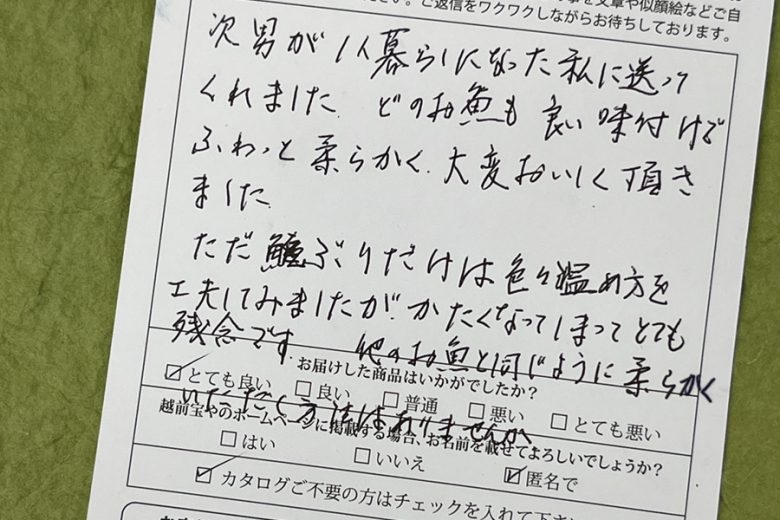 を文章や似顔絵などご自
ださい。ご返信をワクワクしながらお待ちしております。
次男が1人暮らしになった私に送って
くれました。どのお魚も良い味付けで
ふわっと柔らかく、大変おいしく頂き
ました。
ただ鰤ぶりだけは色々温め方を
工夫してみましたが、かたくなってしまってとても
残念です。他のお魚と同じように柔らかく
いただく方法はありませんか
お届けした商品はいかがでしたか？
とても良い 良い 普通 悪い とても悪い
越前宝やのホームページに掲載する場合、お名前を載せてよろしいでしょうか？
はい いいえ 匿名で
カタログご不要の方はチェックを入れて下さい